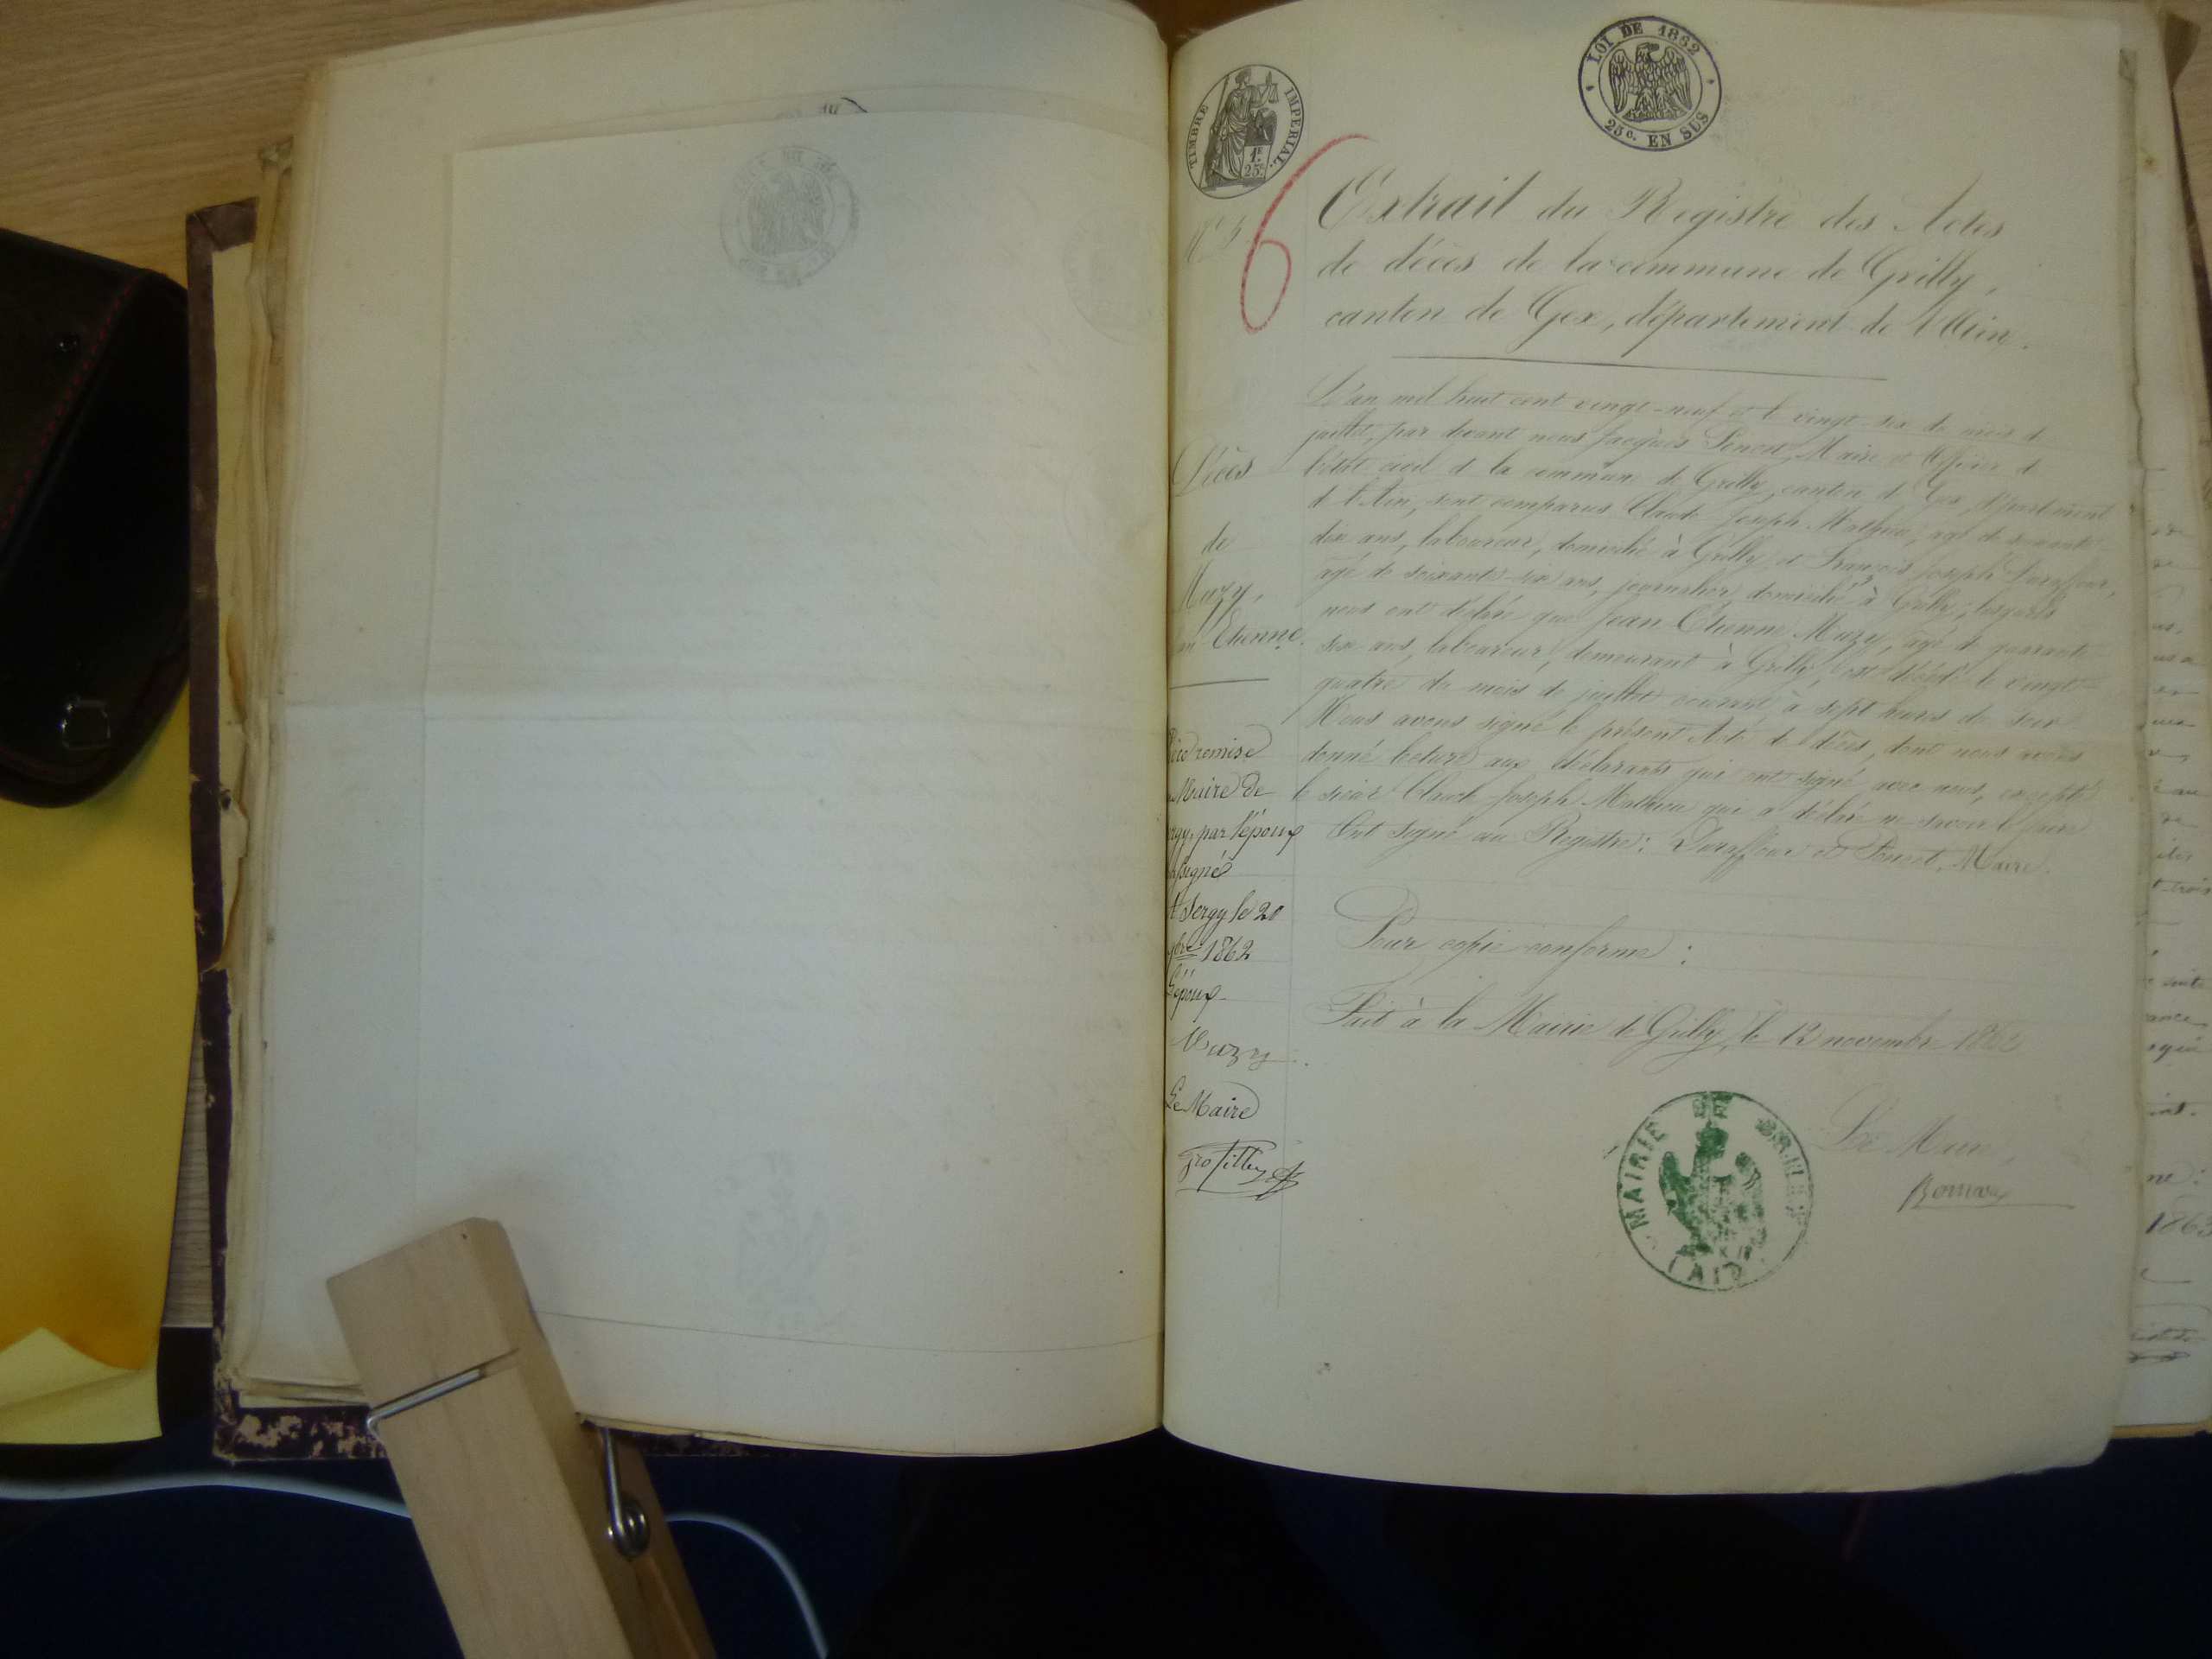 LOI DE 1862
25c. EN SUS
TIMBRE IMPERIAL.
1F
25c
6
Extrait du Registre des Actes
de décès de la commune de Grilly,
canton de Gex, département de l'Ain.
Décès
de
Muzy,
Etienne.
L'an mil huit cent vingt-neuf et le vingt six du mois de
juillet, par devant nous Jacques Maire et Officier de
l'état civil de la commune de Grilly, canton de Gex, département
de l'Ain, sont comparus Claude Joseph Mathieu, agé de soixante
dix ans, laboureur, domicilié à Grilly et François Joseph
agé de soixante-six ans, journalier, domicilié à Grilly, lesquels
nous ont déclaré que Jean Etienne Muzy, agé de quarante
six ans, laboureur, demeurant à Grilly, est décédé le vingt-
quatre du mois de juillet courant à sept heures du soir
Nous avons signé le présent Acte de décès, dont nous avons
donné lecture aux déclarants qui ont signé avec nous, excepté
le sieur Claude Joseph Mathieu qui a déclaré ne savoir le faire
Ont signé au Registre: et Maire.
Pour copie conforme:
Fait à la Mairie de Grilly, le 13 novembre 1862
Le Maire,
MAIRIE DE GRILLY
(AIN)
remise
Maire de
par l'époux
A Sergy le 20
9bre 1862
L'époux
Muzy
Le Maire